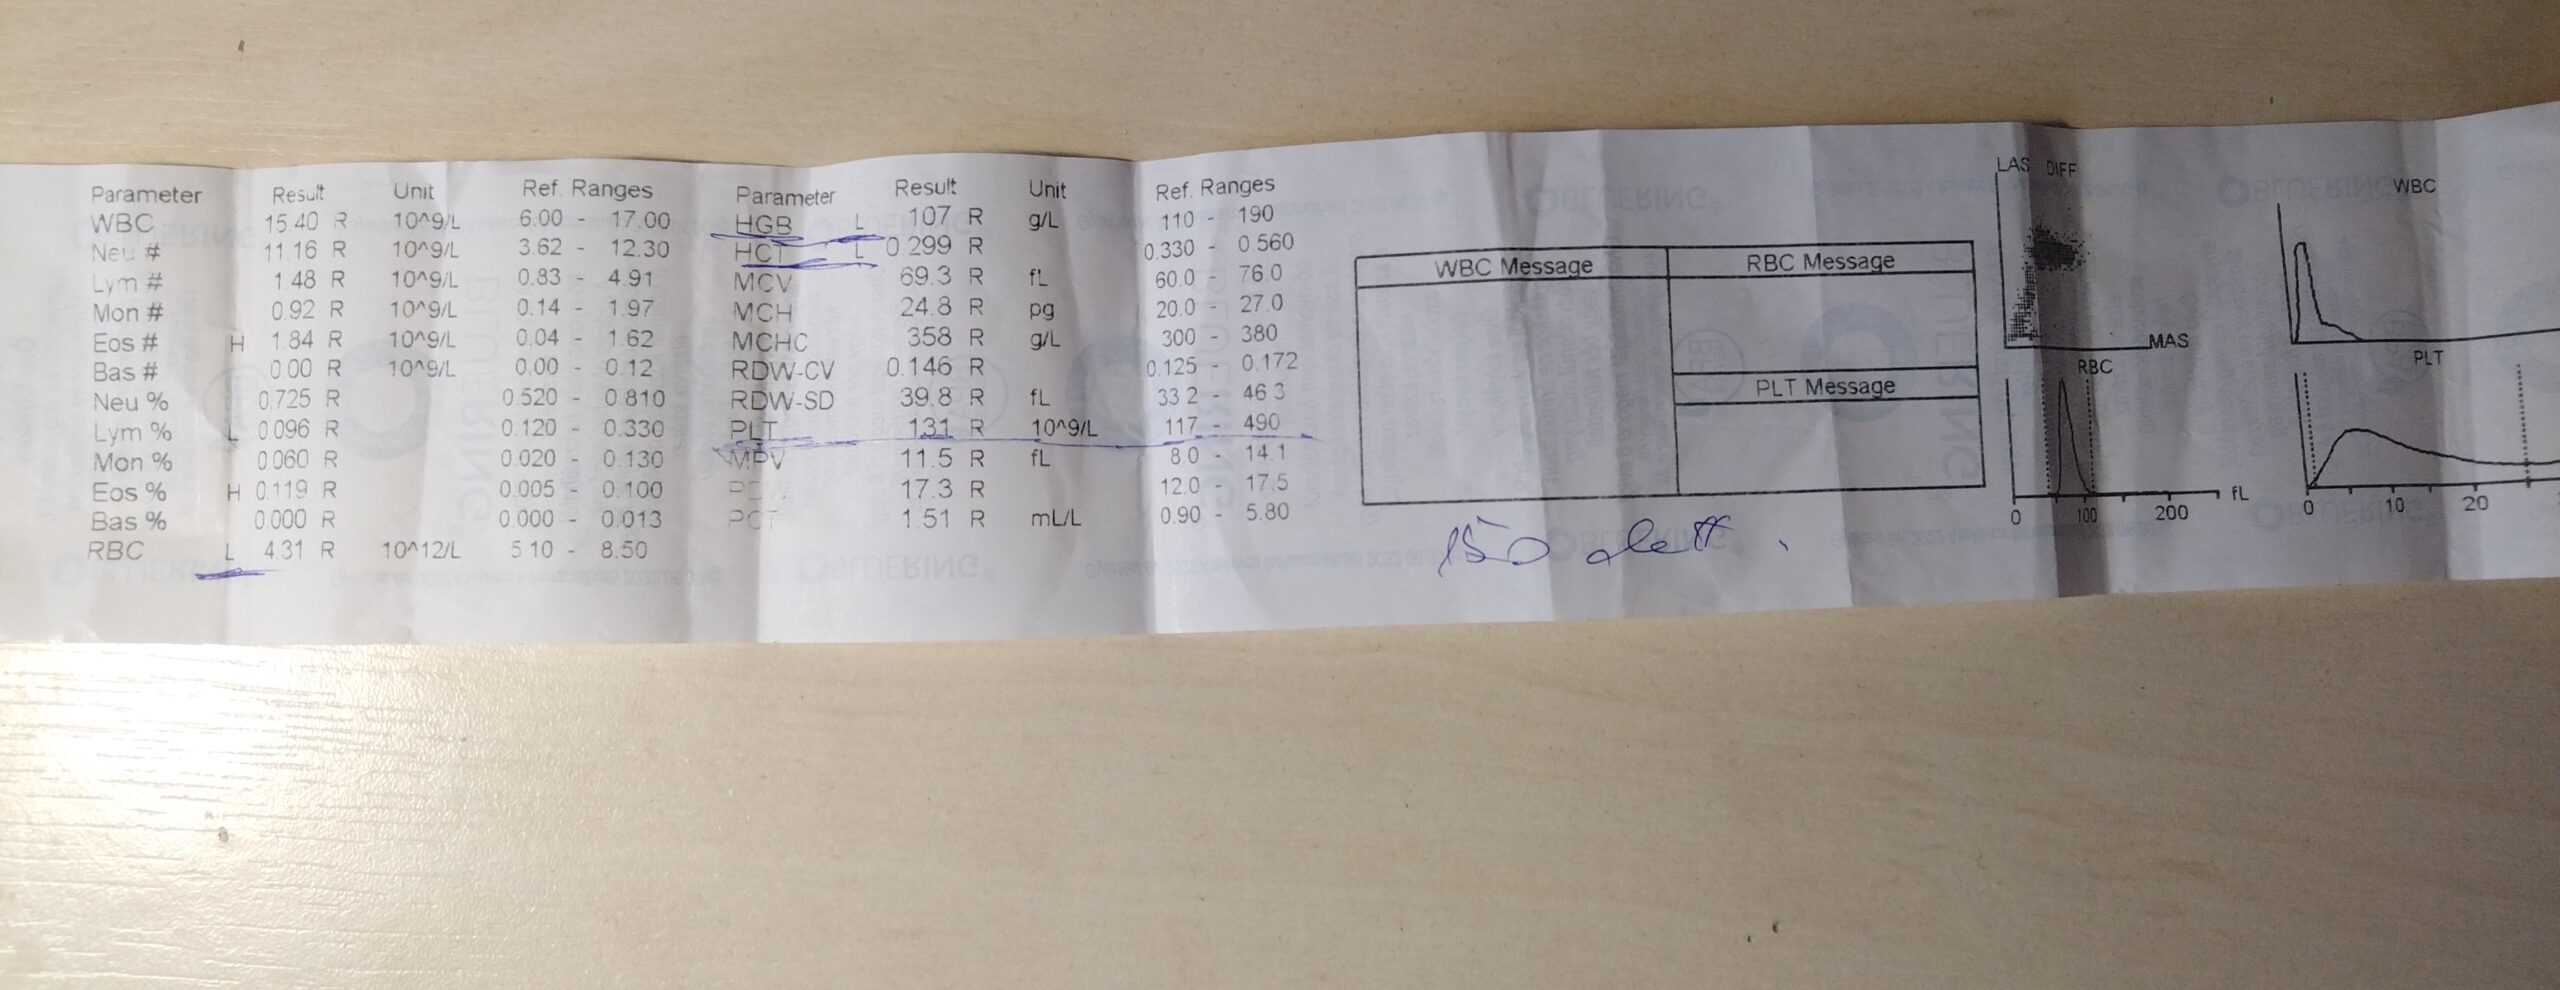 Parameter Result Unit Ref. Ranges
WBC 15.40 R 10^9/L 6.00 - 17.00
Neu # 11.16 R 10^9/L 3.62 - 12.30
Lym # 1.48 R 10^9/L 0.83 - 4.91
Mon # 0.92 R 10^9/L 0.14 - 1.97
Eos # H 1.84 R 10^9/L 0.04 - 1.62
Bas # 0.00 R 10^9/L 0.00 - 0.12
Neu % 0.725 R 0.520 - 0.810
Lym % L 0.096 R 0.120 - 0.330
Mon % 0.060 R 0.020 - 0.130
Eos % H 0.119 R 0.005 - 0.100
Bas % 0.000 R 0.000 - 0.013
RBC L 4.31 R 10^12/L 5.10 - 8.50
Parameter Result Unit Ref. Ranges
HGB L 107 R g/L 110 - 190
HCT L 0.299 R 0.330 - 0.560
MCV 69.3 R fL 60.0 - 76.0
MCH 24.8 R pg 20.0 - 27.0
MCHC 358 R g/L 300 - 380
RDW-CV 0.146 R 0.125 - 0.172
RDW-SD 39.8 R fL 33.2 - 46.3
PLT 131 R 10^9/L 117 - 490
MPV 11.5 R fL 8.0 - 14.1
PDW 17.3 R 12.0 - 17.5
PCT 1.51 R mL/L 0.90 - 5.80
WBC Message RBC Message
PLT Message
150 alatt.
LAS DIFF
MAS
RBC
0 100 200 fL
WBC
PLT
0 10 20